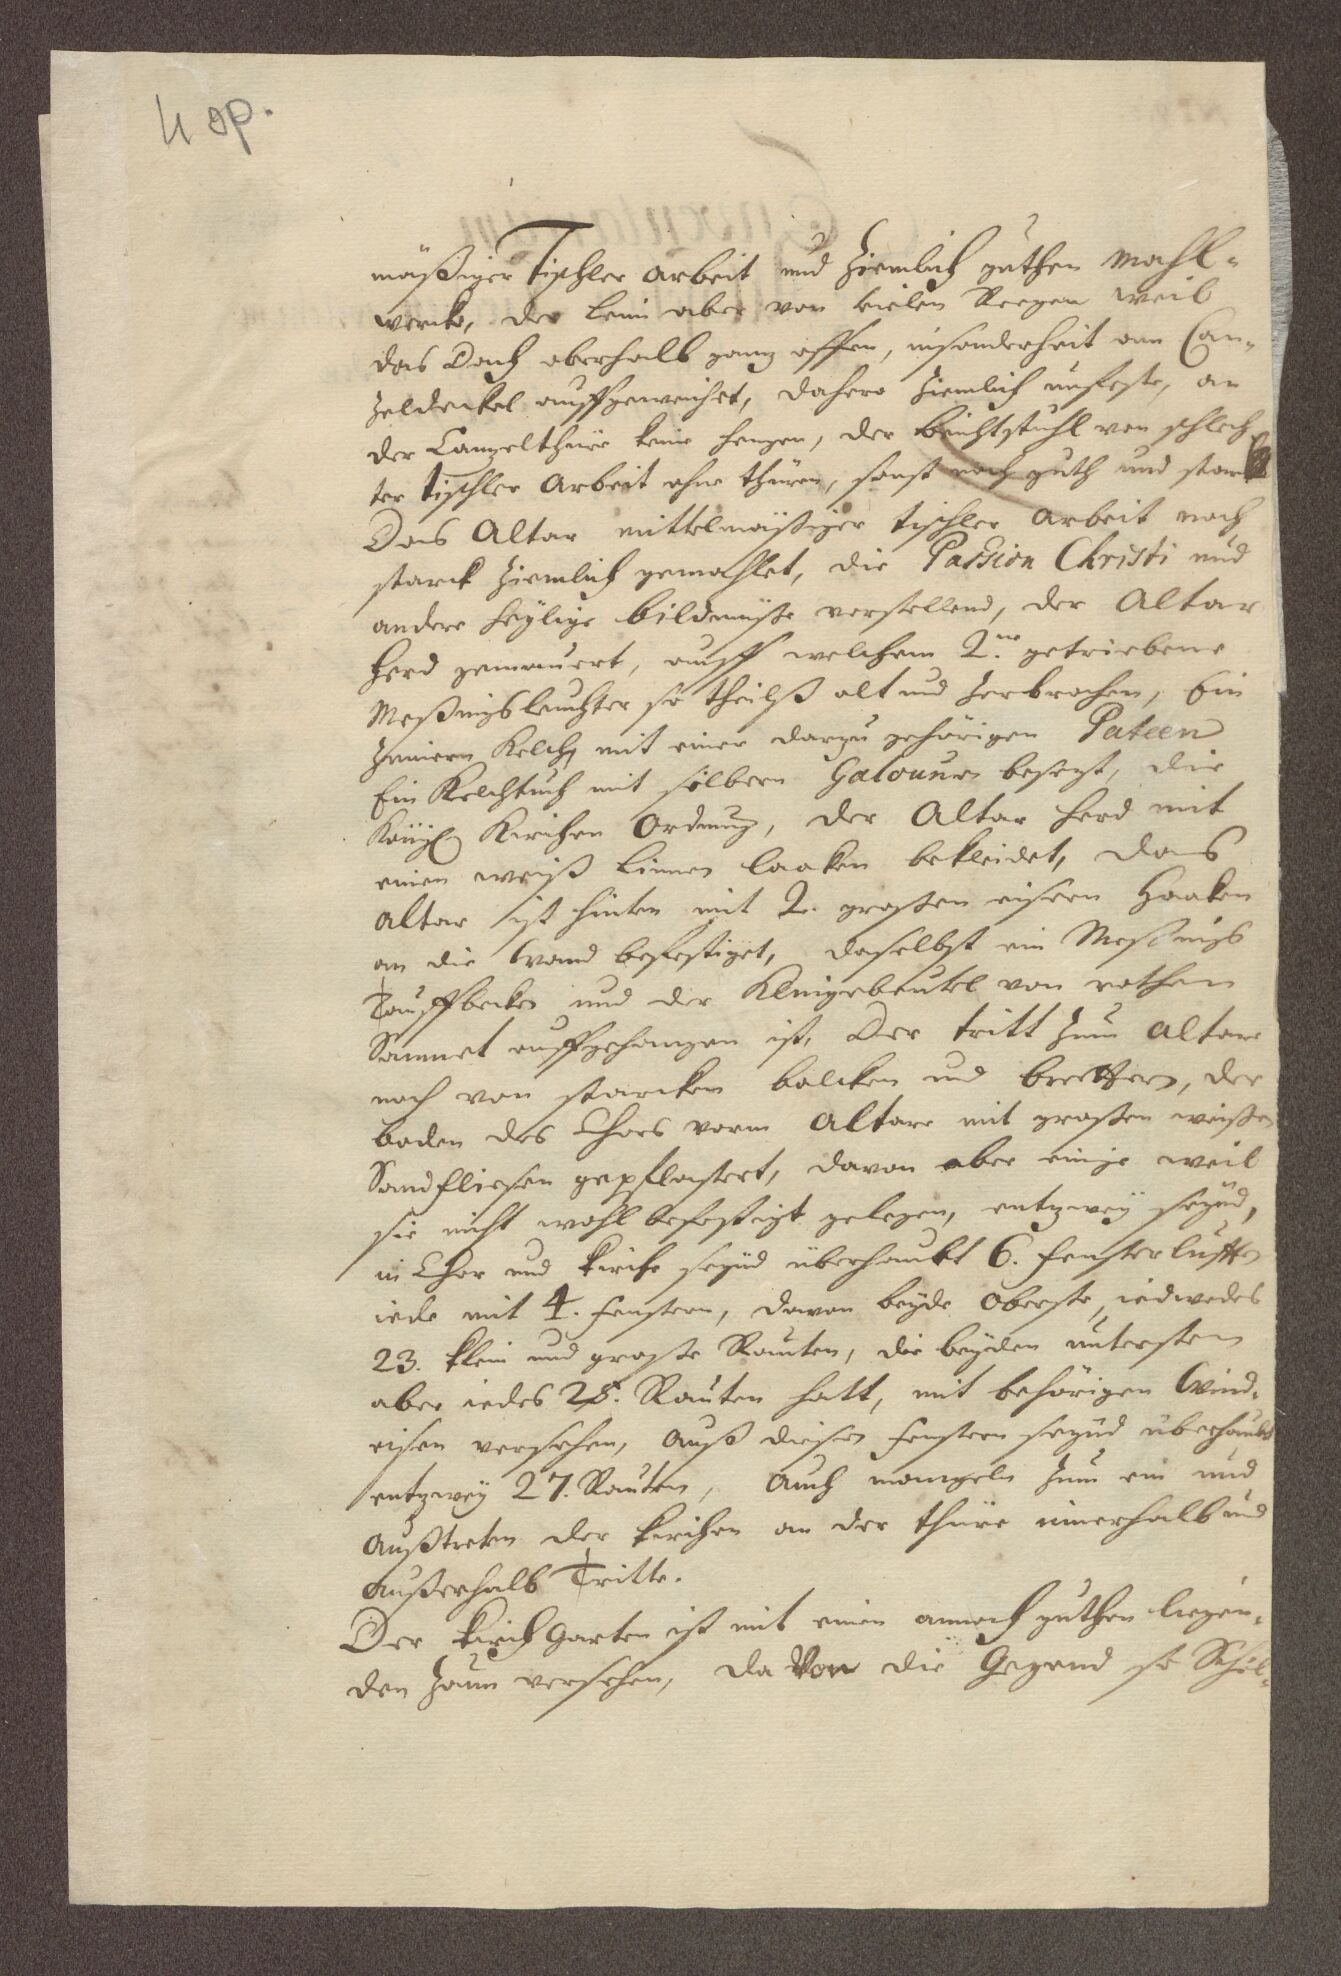 4 op.
mäßiger Tischler Arbeit und ziemlich guthen Mahl-
wercke, der Leim aber von vielen Reegen weil
das Dach oberhalb ganz offen, insonderheit am Can-
zeldeckel auffgeweichet, dahero ziemlich unfeste, an
der Canzelthüre keine Hengen, der Beichtstuhl von schlech-
ter Tischler Arbeit ohne Thüren, sonst noch guth und starck
Das Altar mittelmäßiger Tischler Arbeit noch
starck ziemlich gemahlet, die Passion Christi und
andere heylige Bildnüße verstellend, der Altar
Herd gemauert, auff welchem 2.ne getriebene
Meßingsleuchter so theilß alt und zerbrochen, Ein
zinnern Kelch mit einer darzu gehörigen Pateen
Ein Kelchtuch mit silbern Galounen besezt, die
Königl Kirchen Ordnung, der Altar Herd mit
einen weiß Linnen Laaken bekleidet, das
Altar ist hinten mit 2. großen eisern Haaken
an die Wand befestiget, daselbst ein Meßings
Tauffbecken und der Klingebeutel von rothen
Sammet auffgehangen ist, Der Tritt zum Altar
noch von starcken Balcken und Brettern, der
Boden des Chors vorm Altare mit großen weißen
Sandfliesen gepflastert, davon aber einige weil
sie nicht wohl befestigt gelegen, entzwey seynd,
in Chor und Kirche seynd überhaubt 6. Fensterlufften
iede mit 4. Fenstern, davon beyde Oberste, iedwedes
23. klein und große Rauten, die beyden untersten
aber iedes 28. Rauten hatt, mit behörigen Wind-
eisen versehen, Auß diesen Fenstern seynd überhaubt
entzwey 27. Rauten, Auch mangeln zum ein und
Außtreten der Kirchen an der Thüre innerhalb und
außerhalb Tritte.
Der Kirch Garten ist mit einen annoch guthen liegen-
den Zaun versehen, da Von die Gegend so Schul-